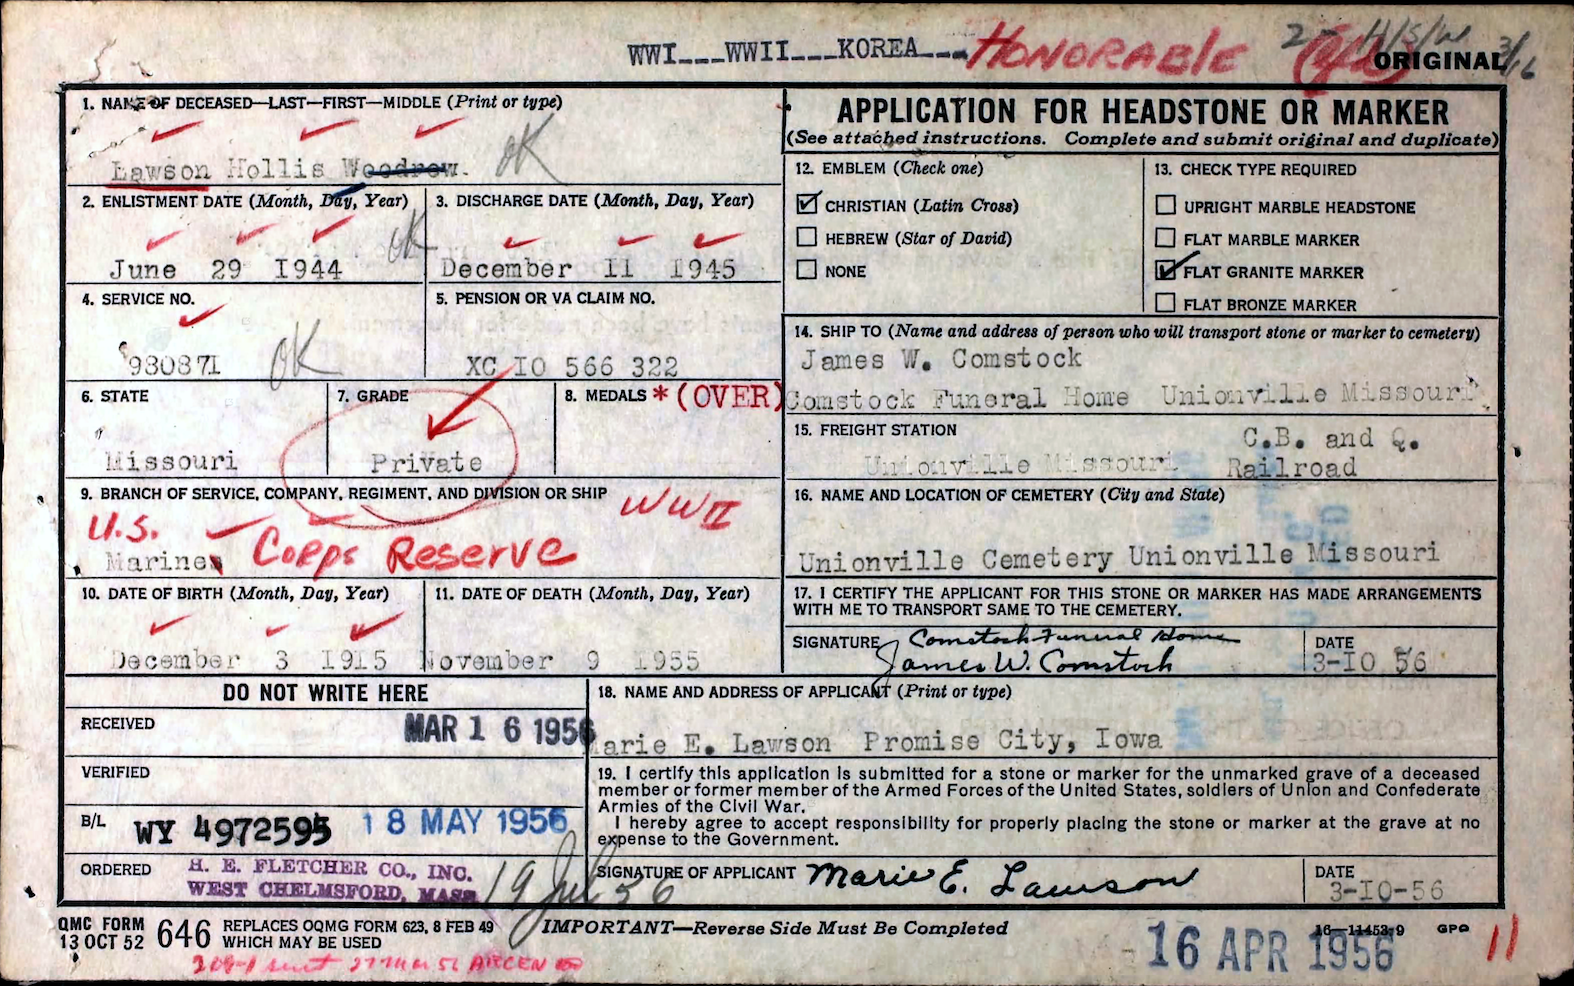 WWI___WWII___KOREA___ HONORABLE
ORIGINAL 3/16
1. NAME OF DECEASED—LAST—FIRST—MIDDLE (Print or type)
Lawson Hollis Woodrow. OK
2. ENLISTMENT DATE (Month, Day, Year)
June 29 I944 OK
3. DISCHARGE DATE (Month, Day, Year)
December II I945
4. SERVICE NO.
980871 OK
5. PENSION OR VA CLAIM NO.
XC IO 566 322
6. STATE
Missouri
7. GRADE
Private
8. MEDALS * (OVER)
9. BRANCH OF SERVICE, COMPANY, REGIMENT, AND DIVISION OR SHIP
WWII
U.S.
Marines Corps Reserve
10. DATE OF BIRTH (Month, Day, Year)
December 3 I9I5
11. DATE OF DEATH (Month, Day, Year)
November 9 I955
APPLICATION FOR HEADSTONE OR MARKER
(See attached instructions. Complete and submit original and duplicate)
12. EMBLEM (Check one)
CHRISTIAN (Latin Cross)
HEBREW (Star of David)
NONE
13. CHECK TYPE REQUIRED
UPRIGHT MARBLE HEADSTONE
FLAT MARBLE MARKER
FLAT GRANITE MARKER
FLAT BRONZE MARKER
14. SHIP TO (Name and address of person who will transport stone or marker to cemetery)
James W. Comstock
Comstock Funeral Home Unionville Missouri
15. FREIGHT STATION
Unionville Missouri
C.B. and Q.
Railroad
16. NAME AND LOCATION OF CEMETERY (City and State)
Unionville Cemetery Unionville Missouri
17. I CERTIFY THE APPLICANT FOR THIS STONE OR MARKER HAS MADE ARRANGEMENTS
WITH ME TO TRANSPORT SAME TO THE CEMETERY.
SIGNATURE Comstock Funeral Home
James W. Comstock
DATE
3-IO 56
DO NOT WRITE HERE
RECEIVED MAR 1 6 1956
VERIFIED
B/L WY 4972595 18 MAY 1956
ORDERED H. E. FLETCHER CO., INC.
WEST CHELMSFORD, MASS
19 Jul 56
18. NAME AND ADDRESS OF APPLICANT (Print or type)
Marie E. Lawson Promise City, Iowa
19. I certify this application is submitted for a stone or marker for the unmarked grave of a deceased
member or former member of the Armed Forces of the United States, soldiers of Union and Confederate
Armies of the Civil War.
I hereby agree to accept responsibility for properly placing the stone or marker at the grave at no
expense to the Government.
SIGNATURE OF APPLICANT Marie E. Lawson
DATE
3-IO-56
QMC FORM
13 OCT 52 646 REPLACES OQMG FORM 623, 8 FEB 49
WHICH MAY BE USED
IMPORTANT—Reverse Side Must Be Completed
16—11453-9 GPO
16 APR 1956
11